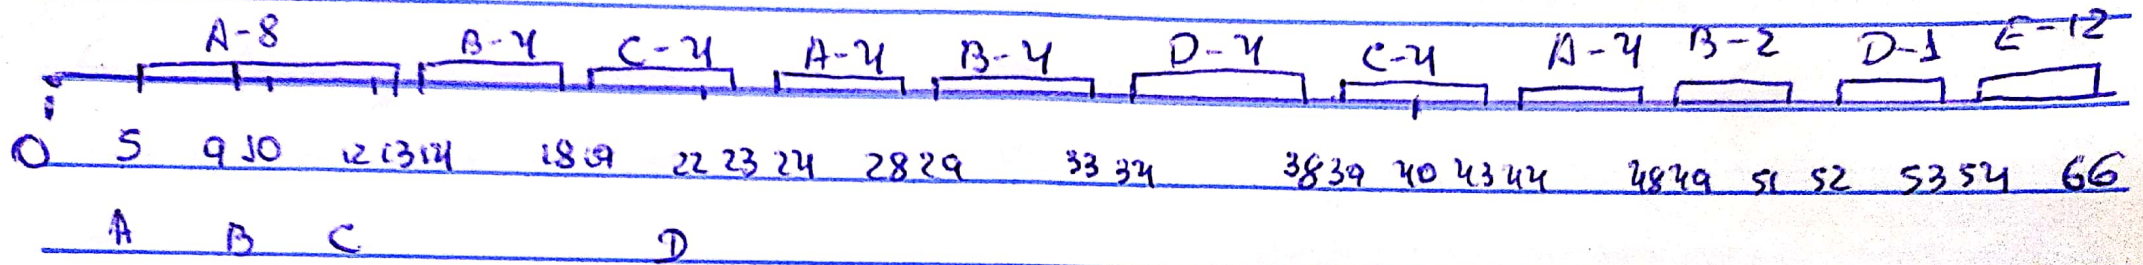 A-8 B-4 C-4 A-4 B-4 D-4 C-4 A-4 B-2 D-1 E-12
0 5 9 10 12 13 14 18 19 22 23 24 28 29 33 34 38 39 40 43 44 48 49 51 52 53 54 66
A B C D